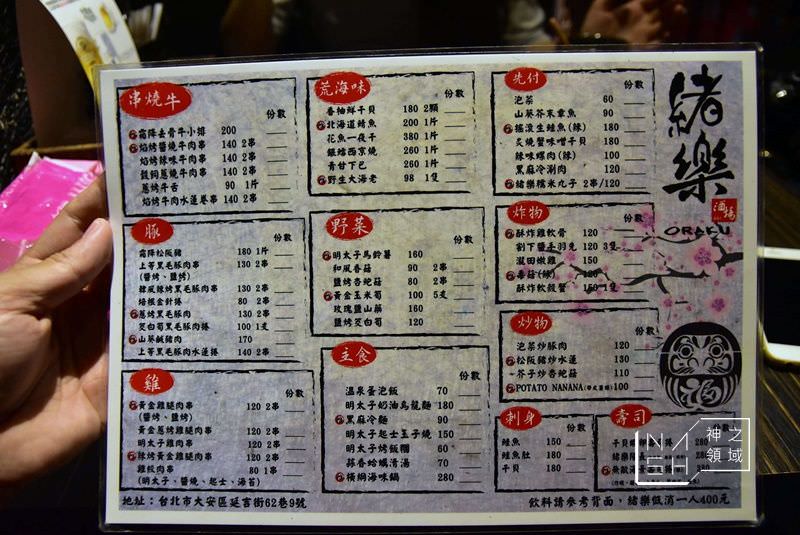 串燒牛
份數
霜降去骨牛小排 200
焰烤醬燒牛肉串 140 2串
焰烤辣味牛肉串 140 2串
蔥燒牛肉串 140 2串
蔥烤牛舌 90 1片
焰烤牛肉水蓮卷串 140 2串
豚
份數
霜降松阪豬 180 1片
上等黑毛豚肉串 130 2串
(醬烤、鹽烤)
韓風辣烤黑毛豚肉串 130 2串
培根金針捲 80 2串
蔥烤黑毛豚肉 130 2串
茭白筍黑毛豚肉捲 100 1支
山葵鹹豬肉 170
上等黑毛豚肉水蓮捲 140 2串
雞
份數
黃金雞腿肉串 120 2串
(醬烤、鹽烤)
黃金蔥烤雞腿肉串 120 2串
明太子雞肉串 120 2串
辣烤黃金雞腿肉串 120 2串
雞絞肉串 80 1串
(明太子、醬燒、起士、海苔)
荒海味
份數
香柚鮮干貝 180 2顆
北海道綺魚 200 1片
花魚一夜干 380 1片
銀鱈西京燒 260 1片
青甘下巴 260 1片
野生大海老 98 1隻
野菜
份數
明太子馬鈴薯 160
和風香菇 90 2串
鹽烤杏鮑菇 80 2串
黃金玉米筍 100 5支
玫瑰鹽山藥 160
鹽烤茭白筍 120
主食
份數
溫泉蛋泡飯 70
明太子奶油烏龍麵 180
黑麻冷麵 90
明太子起士玉子燒 150
明太子烤飯糰 60
蒜香蛤蠣清湯 70
橫綱海味鍋 280
先付
份數
泡菜 60
山葵芥末章魚 90
搖滾生鮭魚(辣) 180
炙燒蟹味噌干貝 180
辣味螺肉(辣) 100
黑麻冷涮肉 120
緒樂糯米丸子 2串/120
炸物
份數
酥炸雞軟骨 120
劉丁鹽手羽先 120 3隻
龍田嫩雞 150
酥炸軟殼蟹 150 1隻
炒物
份數
泡菜炒豚肉 120
松阪豬炒水蓮 130
芥子炒杏鮑菇 110
POTATO NANANA 100
刺身
份數
鮭魚 150
鮭魚肚 180
干貝 180
壽司
份數
緒樂
酒場
ORAKU
福
神之
領域
地址：台北市大安區延吉街62巷9號
飲料請參考背面，緒樂低消一人400元